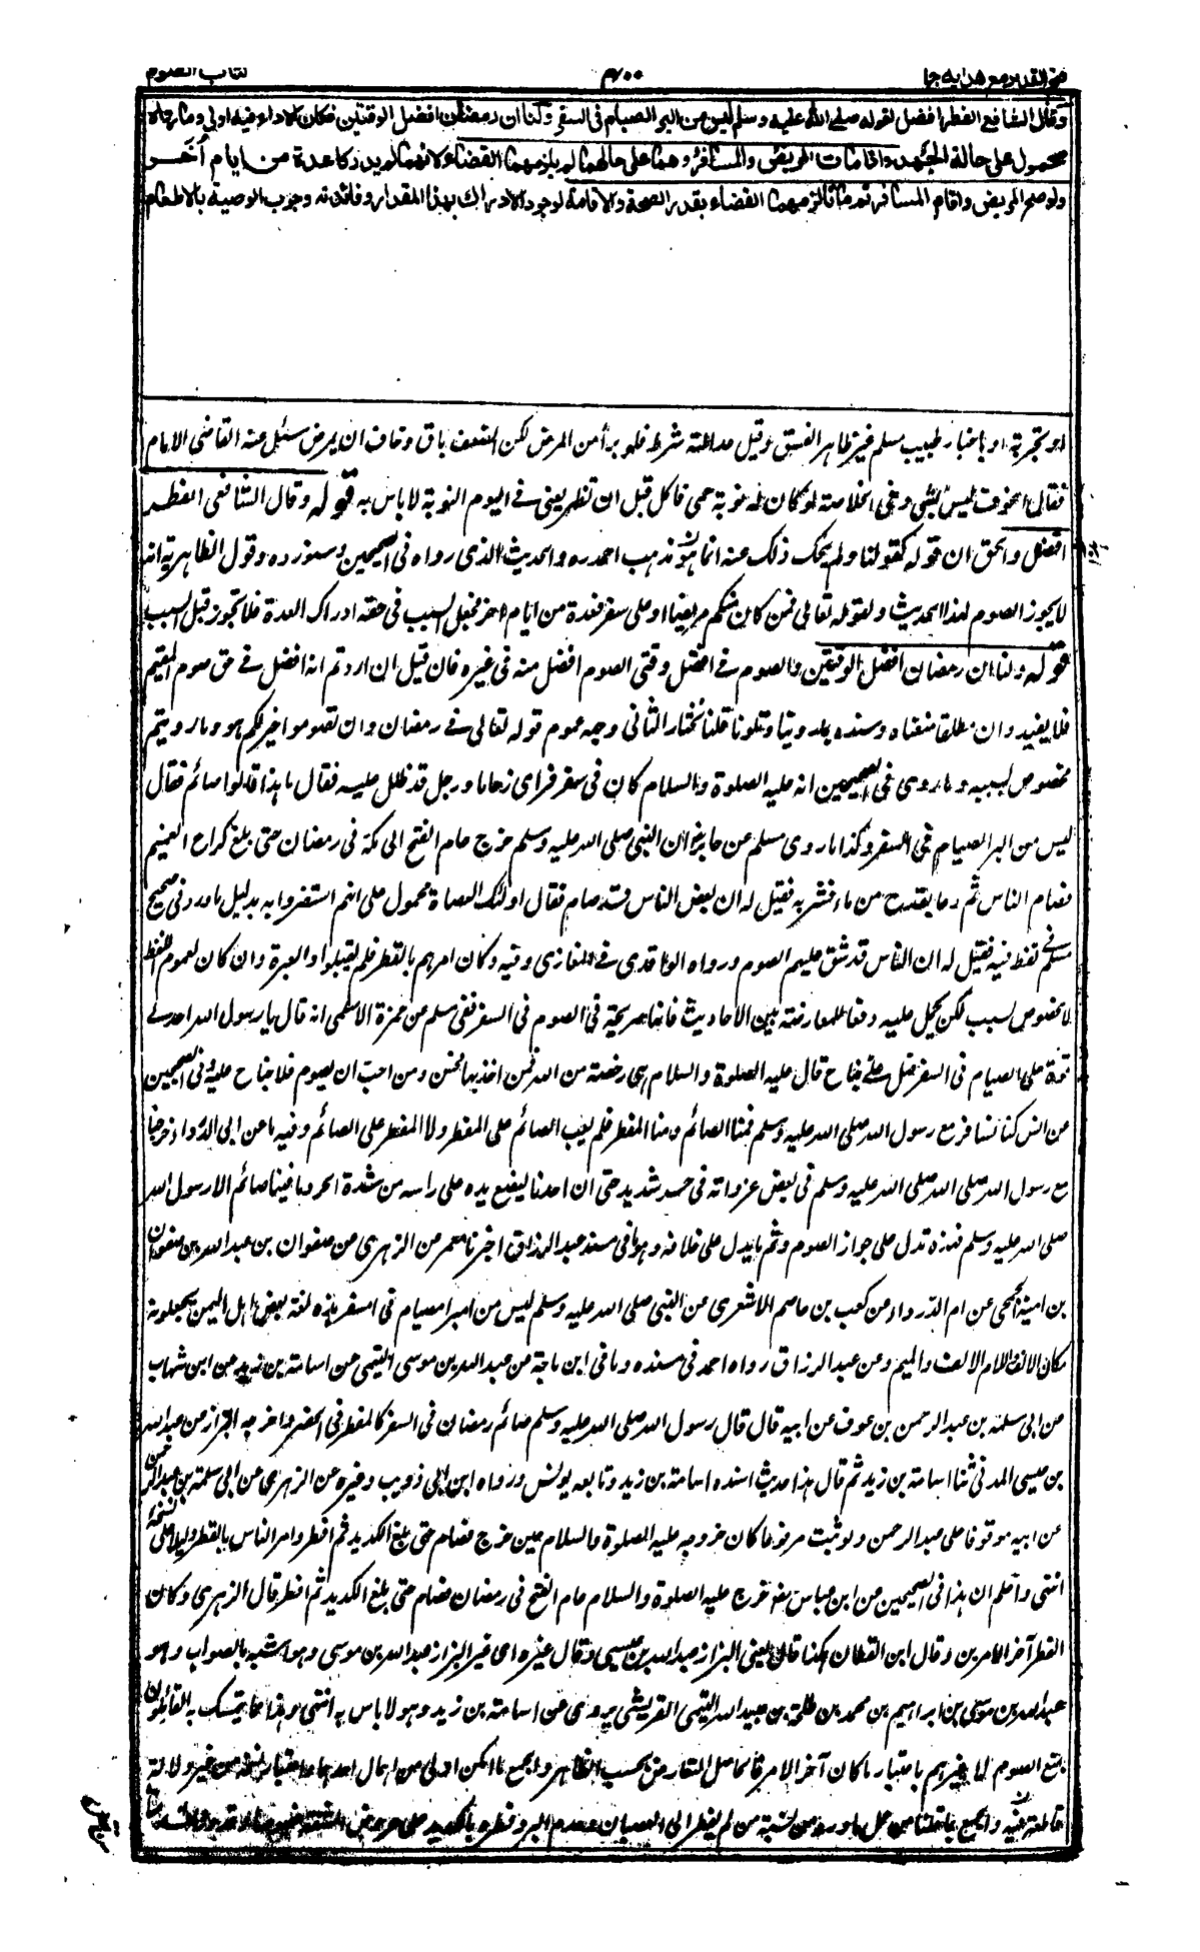 فتح القدير مع هدايه جا
٤٠٠
كتاب الصوم
وقال الشافع الفطر افضل لقوله صلے الله عليه وسلم ليس من البر الصيام فى السفر ولنا ان رمضان افضل الوقتين فكان الاداء فيه اولى وما رواه
محمول على حالة الجهد واذا مات المريض والمسافر وهما على حالهما لم يلزمهما القضاء لانهما لم يدركا عدة من ايام أخر
ولو صح المريض واقام المسافر ثم ماتا لزمهما القضاء بقدر الصحة والاقامة لوجود الادراك بهذا المقدار وفائدته وجوب الوصية بالاطعام
او تجربة او باخبار طبيب مسلم غير ظاهر الفسق وقيل عدالته شرط فلو برأ من المرض لكن الضعف باق وخاف ان يمرض سئل عنه القاضى الامام
فقال الخوف ليس بشئ وفى الخلاصة لو كان له نوبة حمى فاكل قبل ان تظهر يعنى فے اليوم النوبة لا باس به قوله وقال الشافعى الفطر
افضل والحق ان قوله كقولنا ولم يحك ذلك عنه انما هو مذهب احمد ره والحديث الذى رواه فى الصحيحين وسنورده وقول الظاهرية انه
لا يجوز الصوم لهذا الحديث ولقوله تعالى فمن كان منكم مريضا او على سفر فعدة من ايام اخر فجعل السبب فى حقه ادراك العدة فلا يجوز قبل السبب
قوله ولنا ان رمضان افضل الوقتين والصوم فے افضل وقتى الصوم افضل منه فى غيره فان قيل ان اردتم انه افضل فے حق صوم المقيم
فلا يفيد وان مطلقا منعناه وسنده ما روينا وتلونا قلنا نختار الثانى وجه عموم قوله تعالى فے رمضان وان تصوموا خير لكم هو وما رويتم
مخصوص بسببه وما روى فى الصحيحين انه عليه الصلوة والسلام كان فى سفر فراى زحاما ورجل قد ظلل عليه فقال ما هذا قالوا صائم فقال
ليس من البر الصيام فى السفر وكذا ما روى مسلم عن جابر ان النبى صلى الله عليه وسلم خرج عام الفتح الى مكة فى رمضان حتى بلغ كراع الغميم
فصام الناس ثم دعا بقدح من ماء فشربه فقيل له ان بعض الناس قد صام فقال اولئك العصاة محمول على انهم استضروا به بدليل ما ورد فى صحيح
مسلم فے لفظ فيه فقيل له ان الناس قد شق عليهم الصوم ورواه الواقدى فے المغازى وفيه وكان امرهم بالفطر فلم يقبلوا والعبرة وان كان لعموم اللفظ
لا بخصوص السبب لكن يحمل عليه دفعا للمعارضة بين الاحاديث فانها صريحة فى الصوم فى السفر ففى مسلم عن حمزة الاسلمى انه قال يا رسول الله اجد لے
قوة على الصيام فى السفر فهل علے جناح قال عليه الصلوة والسلام هى رخصة من الله فمن اخذ بها فحسن ومن احب ان يصوم فلا جناح عليه وفى الصحيحين
عن انس كنا نسافر مع رسول الله صلى الله عليه وسلم فمنا الصائم ومنا المفطر فلم يعب الصائم على المفطر ولا المفطر على الصائم وفيه ما عن ابى الدرداء خرجنا
مع رسول الله صلى الله صلى الله عليه وسلم فى بعض غزواته فى حر شديد حتى ان احدنا ليضع يده على راسه من شدة الحر وما فينا صائم الا رسول الله
صلى الله عليه وسلم فهذه تدل على جواز الصوم وثم ما يدل على خلافه وهو ما فى مسند عبد الرزاق اخبرنا معمر عن الزهرى عن صفوان بن عبد الله بن صفوان
بن امية الجمحى عن ام الدرداء عن كعب بن عاصم الاشعرى عن النبى صلى الله عليه وسلم ليس من امبر امصيام فى امسفر وهذه لغة بعض اهل اليمن يجعلونه
مكان الالف اللام الالف والميم وعن عبد الرزاق رواه احمد فى مسنده وما فى ابن ماجة عن عبد الله بن موسى التيمى عن اسامة بن زيد عن ابن شهاب
عن ابى سلمة بن عبد الرحمن بن عوف عن ابيه قال قال رسول الله صلى الله عليه وسلم صائم رمضان فى السفر كالمفطر فى الحضر واخرجه البزاز عن عبد الله
بن عيسى المدنى ثنا اسامة بن زيد ثم قال هذا حديث اسنده اسامة بن زيد وتابعه يونس ورواه ابن ابى ذويب وغيره عن الزهرى عن ابى سلمة بن عبد الرحمن
عن ابيه موقوفا على عبد الرحمن ولو ثبت مرفوعا كان خروجه عليه الصلوة والسلام حين خرج فصام حتى بلغ الكديد ثم افطر وامر الناس بالفطر دليلا على نسخه
انتى واعلم ان هذا فى الصحيحين عن ابن عباس رضو خرج عليه الصلوة والسلام عام الفتح فى رمضان فصام حتى بلغ الكديد ثم افطر قال الزهرى وكان
الفطر آخر الامرين وقال ابن القطان هكذا قال يعنى البزاز عبد الله بن عيسى وقال غيره اى غير البزاز عبد الله بن موسى وهو اشبه بالصواب وهو
عبد الله بن موسى بن ابراهيم بن محمد بن طلحة بن عبيد الله التيمى القريشى يروى عن اسامة بن زيد وهو لا باس به انتى وهذا مما يتمسك به القائلون
بمنع الصوم لا غيرهم باعتبار ما كان آخر الامر فالحاصل التعارض بحسب الظاهر والجمع ما امكن اولى من اهمال احدهما واعتبار نسخه من غير دلالة
قاطعة فيه والجمع بما قلنا من حمل ما ورد من نسبة من لم يفطر الى العصيان وعدم البر وفطره بالكديد على عروض المشقة